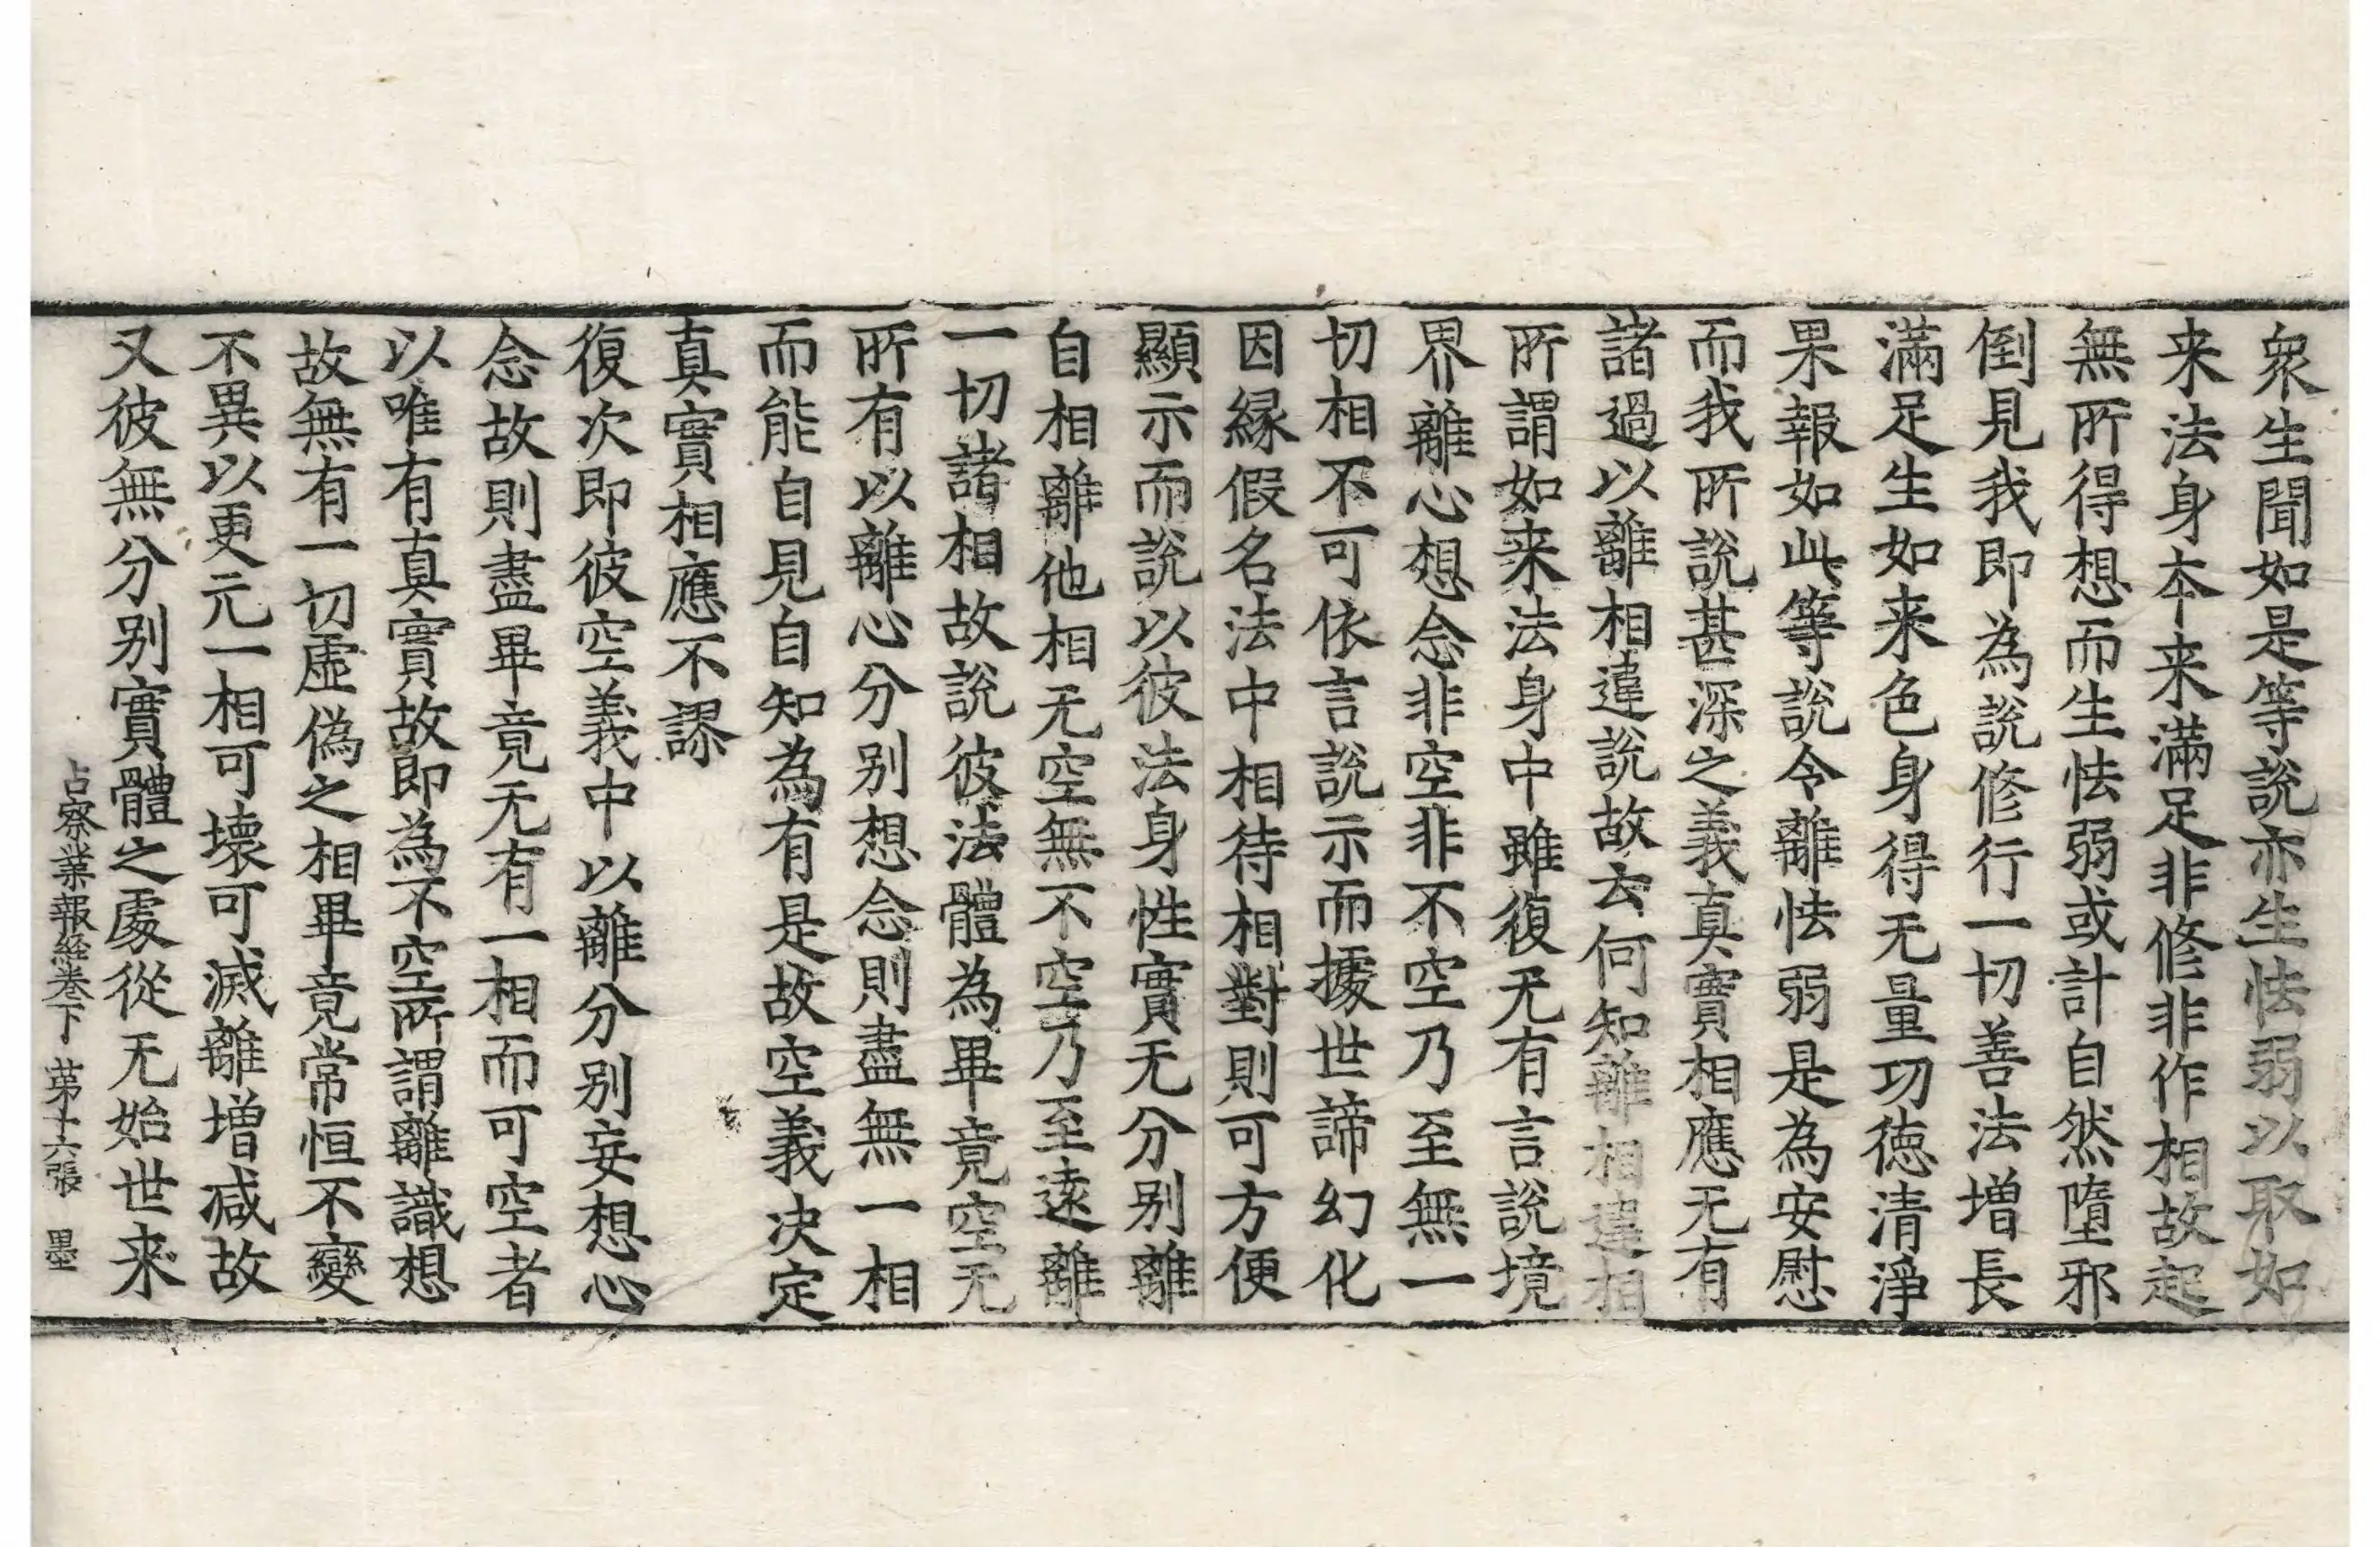 衆生聞如是等說亦生怯弱以取如
来法身本来滿足非修非作相故起
無所得想而生怯弱或計自然墮邪
倒見我即為說修行一切善法增長
滿足生如来色身得无量功徳清淨
果報如此等說令離怯弱是為安慰
而我所說甚深之義真實相應无有
諸過以離相違說故云何知離相違相
所謂如来法身中雖復无有言說境
界離心想念非空非不空乃至無一
切相不可依言說示而據世諦幻化
因縁假名法中相待相對則可方便
顯示而說以彼法身性實无分別離
自相離他相无空無不空乃至遠離
一切諸相故說彼法體為畢竟空无
所有以離心分別想念則盡無一相
而能自見自知為有是故空義决定
真實相應不謬
復次即彼空義中以離分別妄想心
念故則盡畢竟无有一相而可空者
以唯有真實故即為不空所謂離識想
故無有一切虛偽之相畢竟常恒不變
不異以更元一相可壊可滅離增减故
又彼無分别實體之處從无始世来
占察業報經卷下　第十六張　墨